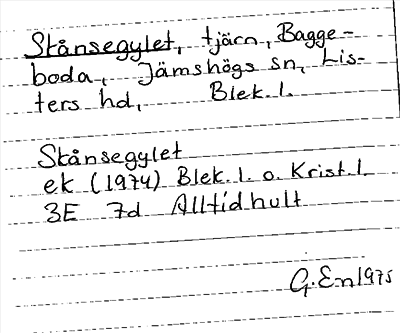 Stånsegylet, tjärn, Bagge-
boda, Jämshögs sn, Lis-
ters hd, Blek. l.
Stånsegylet
ek (1974) Blek. l. o. Krist. l.
3E 7d Alltidhult
G. En 1975